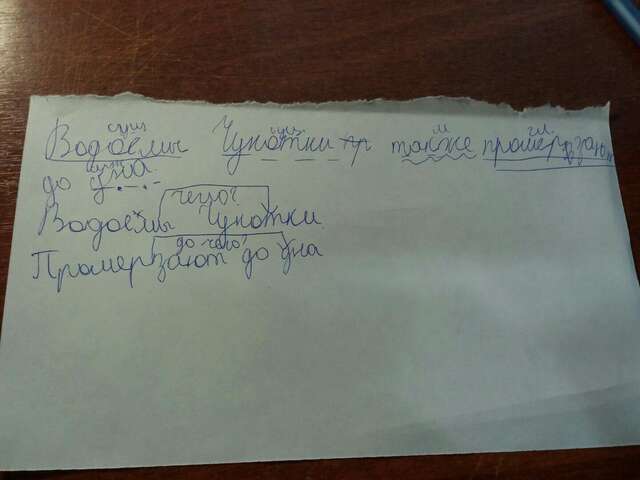 сущ сущ м гл
Водоёмы Чукотки также промерзают
сущ
до дна.
чего?
Водоёмы Чукотки
до чего?
Промерзают до дна